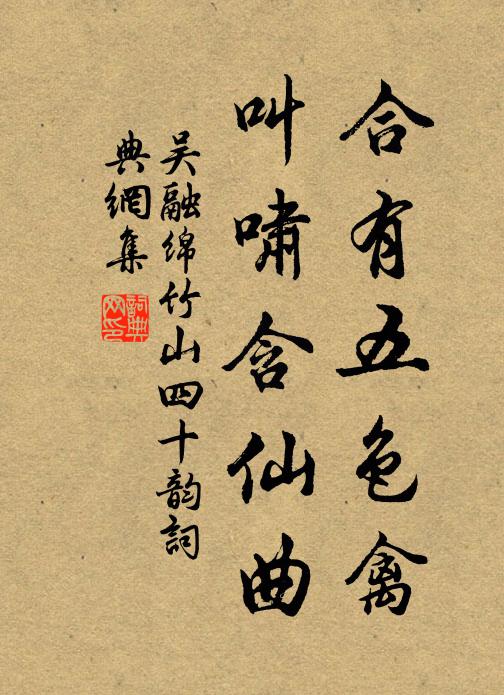 合有五色禽
叫啸含仙曲
吴融绵竹山四十韵詞
典網集
詞典
网印